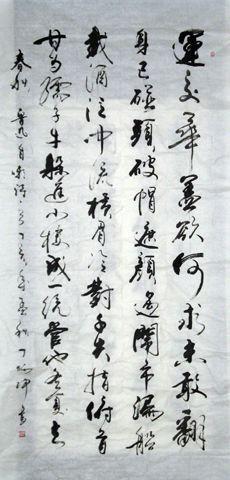 運交華蓋欲何求未敢翻
身已碰頭破帽遮顏過鬧市漏船
載酒泛中流橫眉冷對千夫指俯首
甘為孺子牛躲進小樓成一統管他冬夏与
春秋 魯迅自嘲詩一首丁亥年孟秋 丁 書